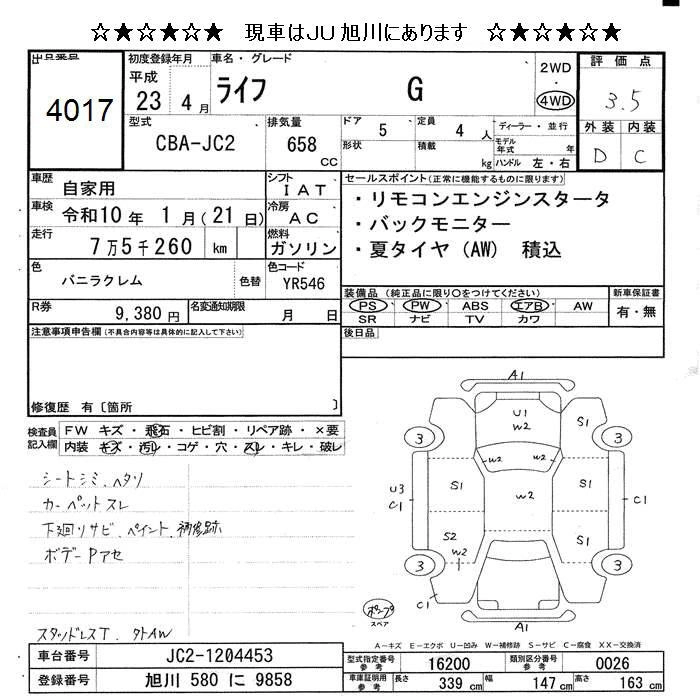 ☆★☆★☆★ 現車はＪＵ旭川にあります ☆★☆★☆★
出品番号
4017
初度登録年月
平成
23 4月
車名・グレード
ライフ G
2WD
・
4WD
評価点
3.5
外装 内装
D C
型式
CBA-JC2
排気量
658
cc
ドア 5
形状
定員 4 人
積載 kg
ディーラー・並行
モデル年式 年
ハンドル 左・右
車歴 自家用
シフト IAT
車検 令和10年 1月(21日)
冷房 AC
走行 7万5千260 km
燃料 ガソリン
色 バニラクレム 色替
色コード YR546
R券 9,380円
名変通知期限 月 日
セールスポイント(正常に機能するものに限ります)
・リモコンエンジンスタータ
・バックモニター
・夏タイヤ(AW) 積込
装備品 (純正品に限り〇をつけてください)
PS PW ABS エアB AW
SR ナビ TV カワ
新車保証書
有・無
後日品
注意事項申告欄(不具合内容等は具体的に記入して下さい)
修復歴 有〔箇所 〕
検査員記入欄
FW キズ・飛石・ヒビ割・リペア跡・×要
内装 キズ・汚レ・コゲ・穴・スレ・キレ・破レ
シートシミ、ヘタリ
カーペットスレ
下廻リサビ、ペイント、補修跡
ボデーPアセ
スタッドレスT、夕トAW
A1
U1
W2
S1
3
3
W2
W2
U3
C1
S1
W2
S1
C1
S2
W2
S1
3
3
C1
ポンプ
スペア
A1
A－キズ E－エクボ U－凹み W－補修跡 S－サビ C－腐食 XX－交換済
車台番号 JC2-1204453
登録番号 旭川 580 に 9858
型式指定番号 参考 16200
類別区分番号 参考 0026
車庫証明用 参考 長さ 339cm 幅 147cm 高さ 163cm